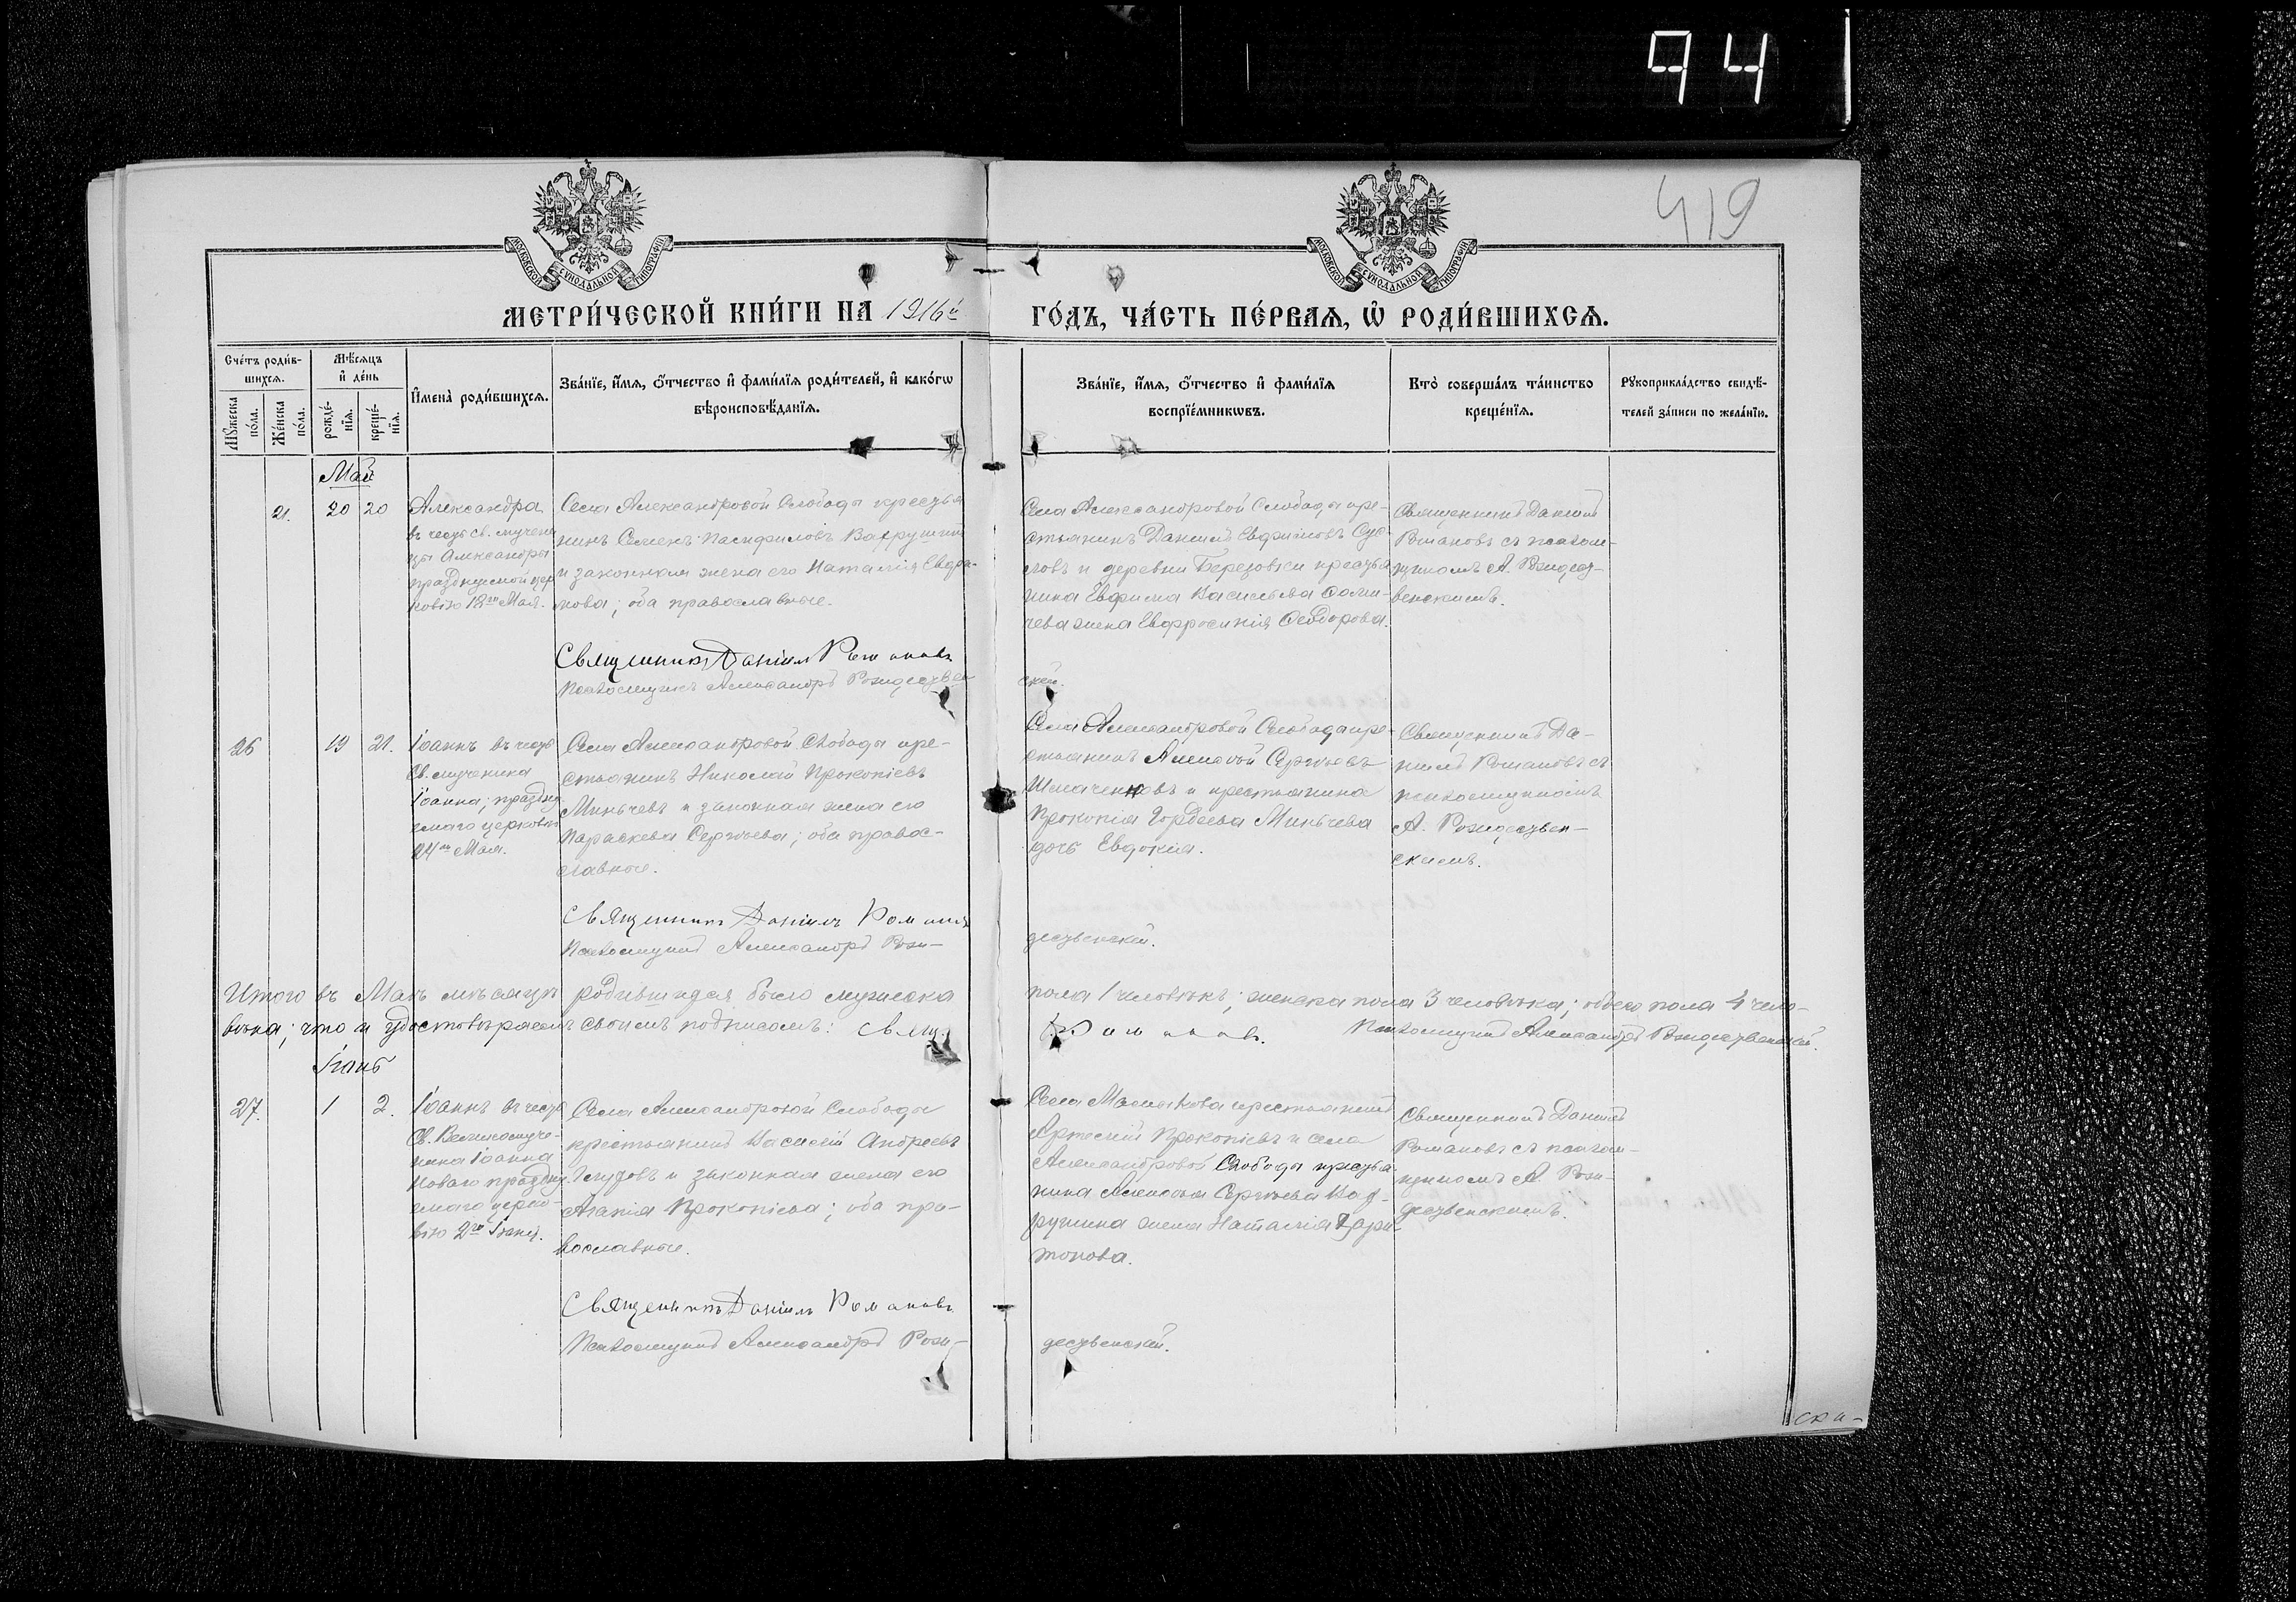 94
419
МОСКОВСКОЙ СѴНОДАЛЬНОЙ ТИПОГРАФІИ
МОСКОВСКОЙ СѴНОДАЛЬНОЙ ТИПОГРАФІИ
МЕТРИ́ЧЕСКОЙ КНИ́ГИ НА 1916й
ГО́ДЪ, ЧА́СТЬ ПЕ́РВАѦ, Ѡ РОДИ́ВШИХСѦ.
Сче́тъ роди́в-
шихсѧ.
Мꙋ́жеска по́ла.
Же́нска по́ла.
Мѣ́сѧцъ
и҆ де́нь
рожде́-
нїѧ.
креще́-
нїѧ.
И҆мена̀ роди́вшихсѧ.
Зва́нїе, и҆́мѧ, ѻ҆́тчество и҆ фами́лїѧ роди́телей, и҆ како́гѡ
вѣроисповѣ́данїѧ.
Зва́нїе, и҆́мѧ, ѻ҆́тчество и҆ фами́лїѧ
воспрїе́мникѡвъ.
Кто̀ соверша́лъ та́инство
креще́нїѧ.
Рꙋкоприкла́дство свидѣ́-
телей за́писи по жела́нїю.
Май
21.
20
20
Александра
въ честь св. мучени
цы Александры
празднуемой цер
ковію 18го Мая.
Села Александровой Слободы крестья
нинъ Семенъ Вахрушинъ
и законная жена его Наталія Евфи-
мова; оба православные.
Священникъ Даніилъ Романовъ
Псаломщикъ Александръ Рождествен
Села Александровой Слободы кре-
стьянинъ Даніилъ Евфимовъ Сус-
ловъ и деревни Березовки крестья
нина Евфима Васильева
чева жена Евфросинія Ѳеодорова.
скій.
Священникъ Даніилъ
Романовъ съ псалом-
щикомъ А. Рождест-
венскимъ.
26
19
21.
Іоаннъ въ честь
Св. мученика
Іоанна, праздну
емаго церковію
24го Мая.
Села Александровой Слободы кре-
стьянинъ Николай Прокопіевъ
Миньчевъ и законная жена его
Параскева Сергѣева; оба правос-
славные.
Священникъ Даніилъ Романовъ
Псаломщикъ Александръ Рож-
Села Александровой Слободы кре-
стьянинъ Алексѣй Сергѣевъ
и крестьянина
Прокопія Гордѣева Миньчева
дочь Евдокія.
дественскій.
Священникъ Да-
ніилъ Романовъ съ
псаломщикомъ
А. Рождествен-
скимъ.
Итого въ Маѣ мѣсяцѣ родившихся было мужеска пола 1 человѣкъ; женска пола 3 человѣка; обоего пола 4 чело-
вѣка; что и удостовѣряемъ своимъ подписомъ: Свящ. Романовъ. Псаломщикъ Александръ Рождественскій.
Іюнь
27.
1
2.
Іоаннъ въ честь
Св. Великомуче-
ника Іоанна
Новаго праздну-
емаго церко-
вію 2го Іюня.
Села Александровой Слободы
крестьянинъ Василій Андреевъ
и законная жена его
Агапія Прокопіева; оба пра-
вославные.
Священникъ Даніилъ Романовъ
Псаломщикъ Александръ Рож-
Села крестьянинъ
Артемій Прокопіевъ и села
Александровой Слободы крестья
нина Алексѣя Сергѣева Вах-
рушина жена Наталія Хари
тонова.
дественскій.
Священникъ Даніилъ
Романовъ съ псалом-
щикомъ А. Рож-
дественскимъ.